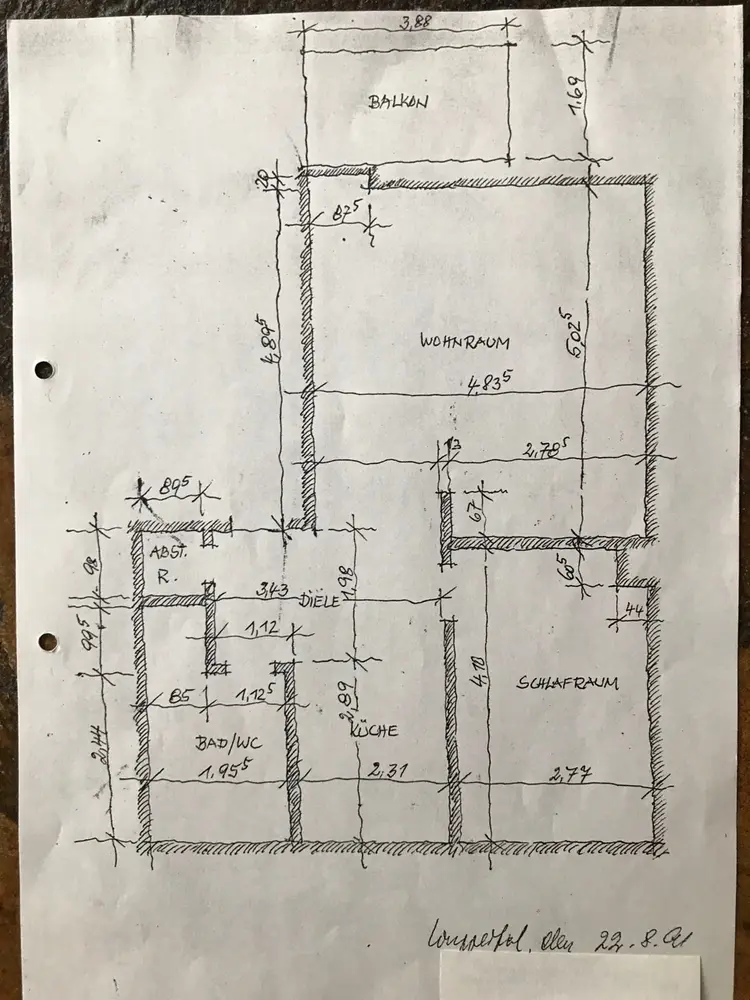 3,88
BALKON
1,69
20
87⁵
4,89⁵
WOHNRAUM
5,02⁵
4,83⁵
13
2,78⁵
89⁵
67
98
ABST.
R.
60⁵
3,43
DIELE
1,98
99⁵
1,12
44
4,10
SCHLAFRAUM
85
1,12⁵
2,89
KÜCHE
2,44
BAD/WC
1,95⁵
2,31
2,77
Wuppertal, den 22.8.91